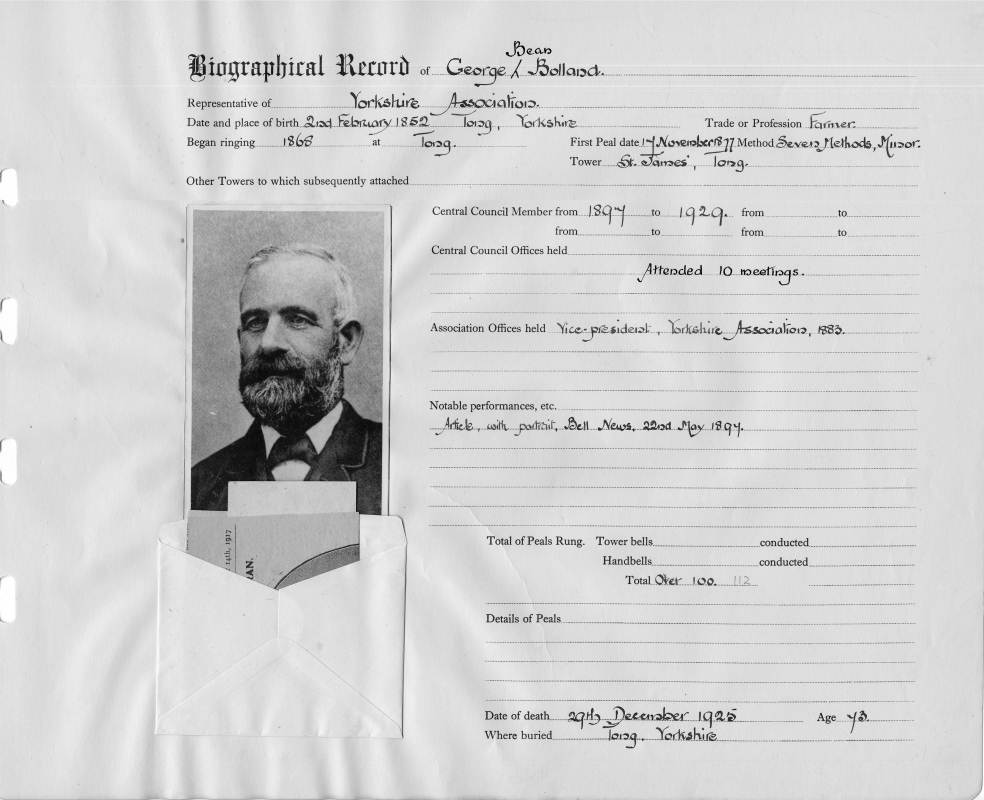 Bean
Biographical Record of George ⁁ Bolland.
Representative of Yorkshire Association.
Date and place of birth 2nd February 1852 Tong, Yorkshire Trade or Profession Farmer.
Began ringing 1868 at Tong. First Peal date 17 November 1877 Method Seven Methods, Minor.
Tower St. James', Tong.
Other Towers to which subsequently attached
Central Council Member from 1897 to 1929. from to
from to from to
Central Council Offices held
Attended 10 meetings.
Association Offices held Vice-president, Yorkshire Association, 1883.
Notable performances, etc.
Article, with portrait, Bell News, 22nd May 1897.
Total of Peals Rung. Tower bells conducted
Handbells conducted
Total Over 100. 112
Details of Peals
Date of death 29th December 1925 Age 73.
Where buried Tong, Yorkshire
14th, 1917